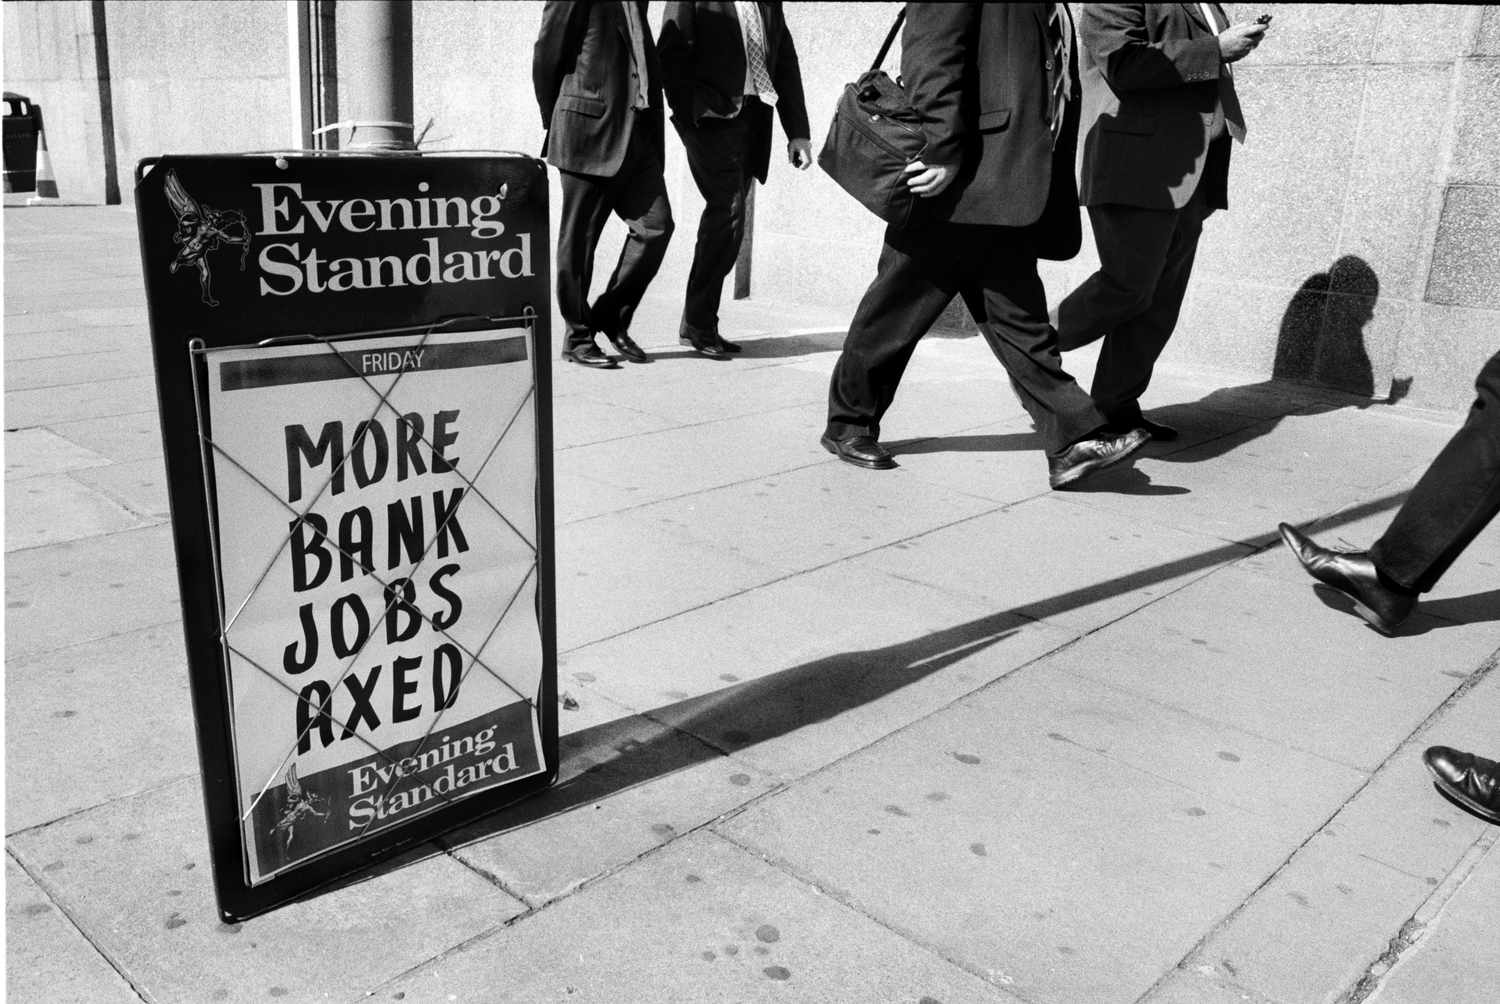 Evening
Standard
FRIDAY
MORE
BANK
JOBS
AXED
Evening
Standard